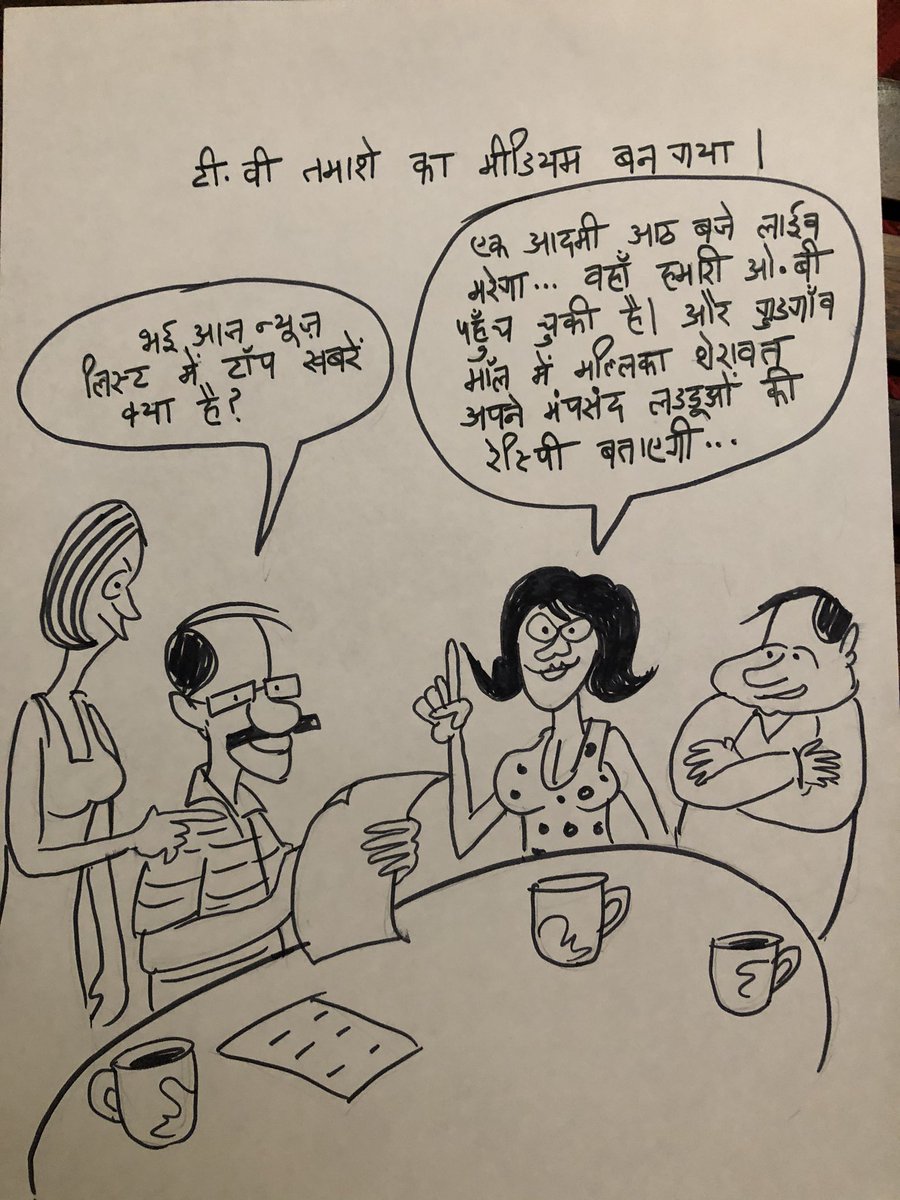 टी.वी तमाशे का मीडियम बन गया।
भई आज न्यूज़
लिस्ट में टॉप खबरें
क्या है?
एक आदमी आठ बजे लाईव
मरेगा... वहाँ हमारी ओ.बी
पहुँच चुकी है। और गुडगाँव
मॉल में मल्लिका शेरावत
अपने मंपसंद लड्डूओं की
रेसिपी बताएगी...